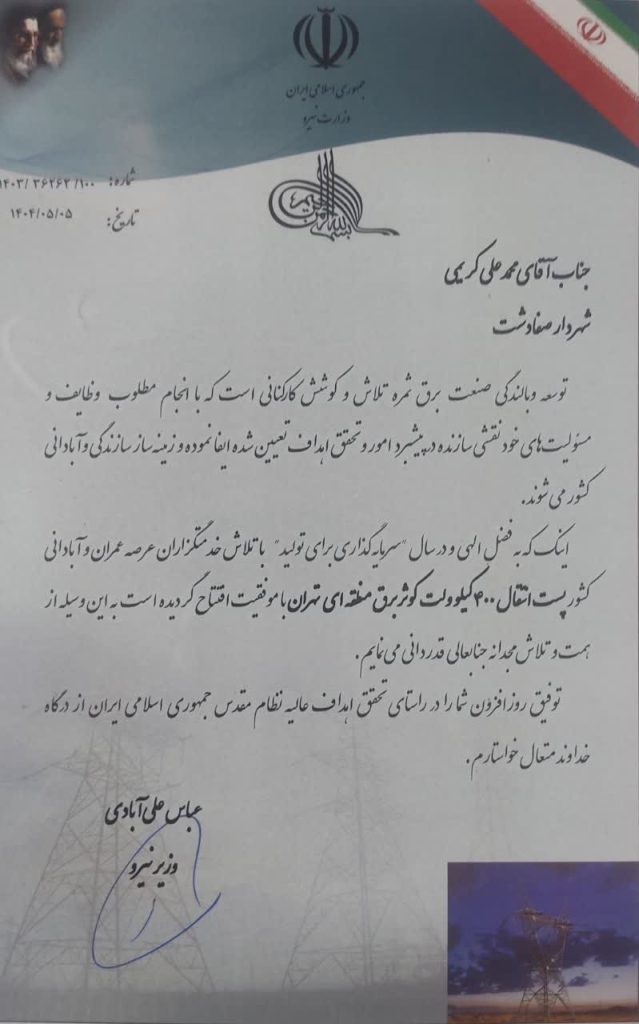 جمهوری اسلامی ایران
وزارت نیرو
شماره: ۱۴۰۳/۳۶۲۶۲/۱۰۰
تاریخ: ۱۴۰۴/۰۵/۰۵
بسم الله الرحمن الرحیم
جناب آقای محمد علی کریمی
شهردار صفادشت
توسعه وبالندگی صنعت برق ثمره تلاش و کوشش کارکنانی است که با انجام مطلوب وظایف و
مسؤلیت‌های خود نقشی سازنده در پیشبرد امور و تحقق اهداف تعیین شده ایفا نموده و زمینه ساز سازندگی و آبادانی
کشور می‌شوند.
اینک که به فضل الهی و در سال "سرمایه گذاری برای تولید" با تلاش خدمتگزاران عرصه عمران و آبادانی
کشور پست انتقال ۴۰۰ کیلو ولت کوثر برق منطقه ای تهران با موفقیت افتتاح گردیده است به این وسیله از
همت و تلاش مجدانه جنابعالی قدردانی می‌نمایم.
توفیق روز افزون شما را در راستای تحقق اهداف عالیه نظام مقدس جمهوری اسلامی ایران از درگاه
خداوند متعال خواستارم.
عباس علی آبادی
وزیر نیرو